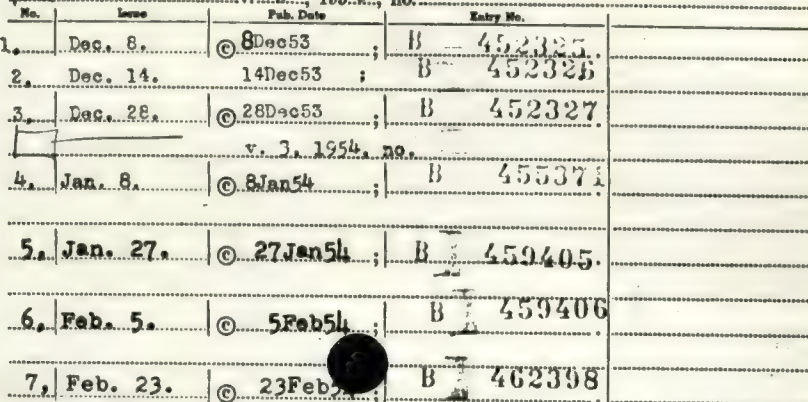 No. Issue Pub. Date Entry No.
1. Dec. 8. © 8Dec53 ; B 452325.
2. Dec. 14. 14Dec53 ; B 452326
3. Dec. 28. © 28Dec53 ; B 452327
v. 3, 1954, no.
4. Jan. 8. © 8Jan54 ; B 455371
5. Jan. 27. © 27Jan54 ; B 459405.
6. Feb. 5. © 5Feb54 ; B 459406
7. Feb. 23. © B 462398